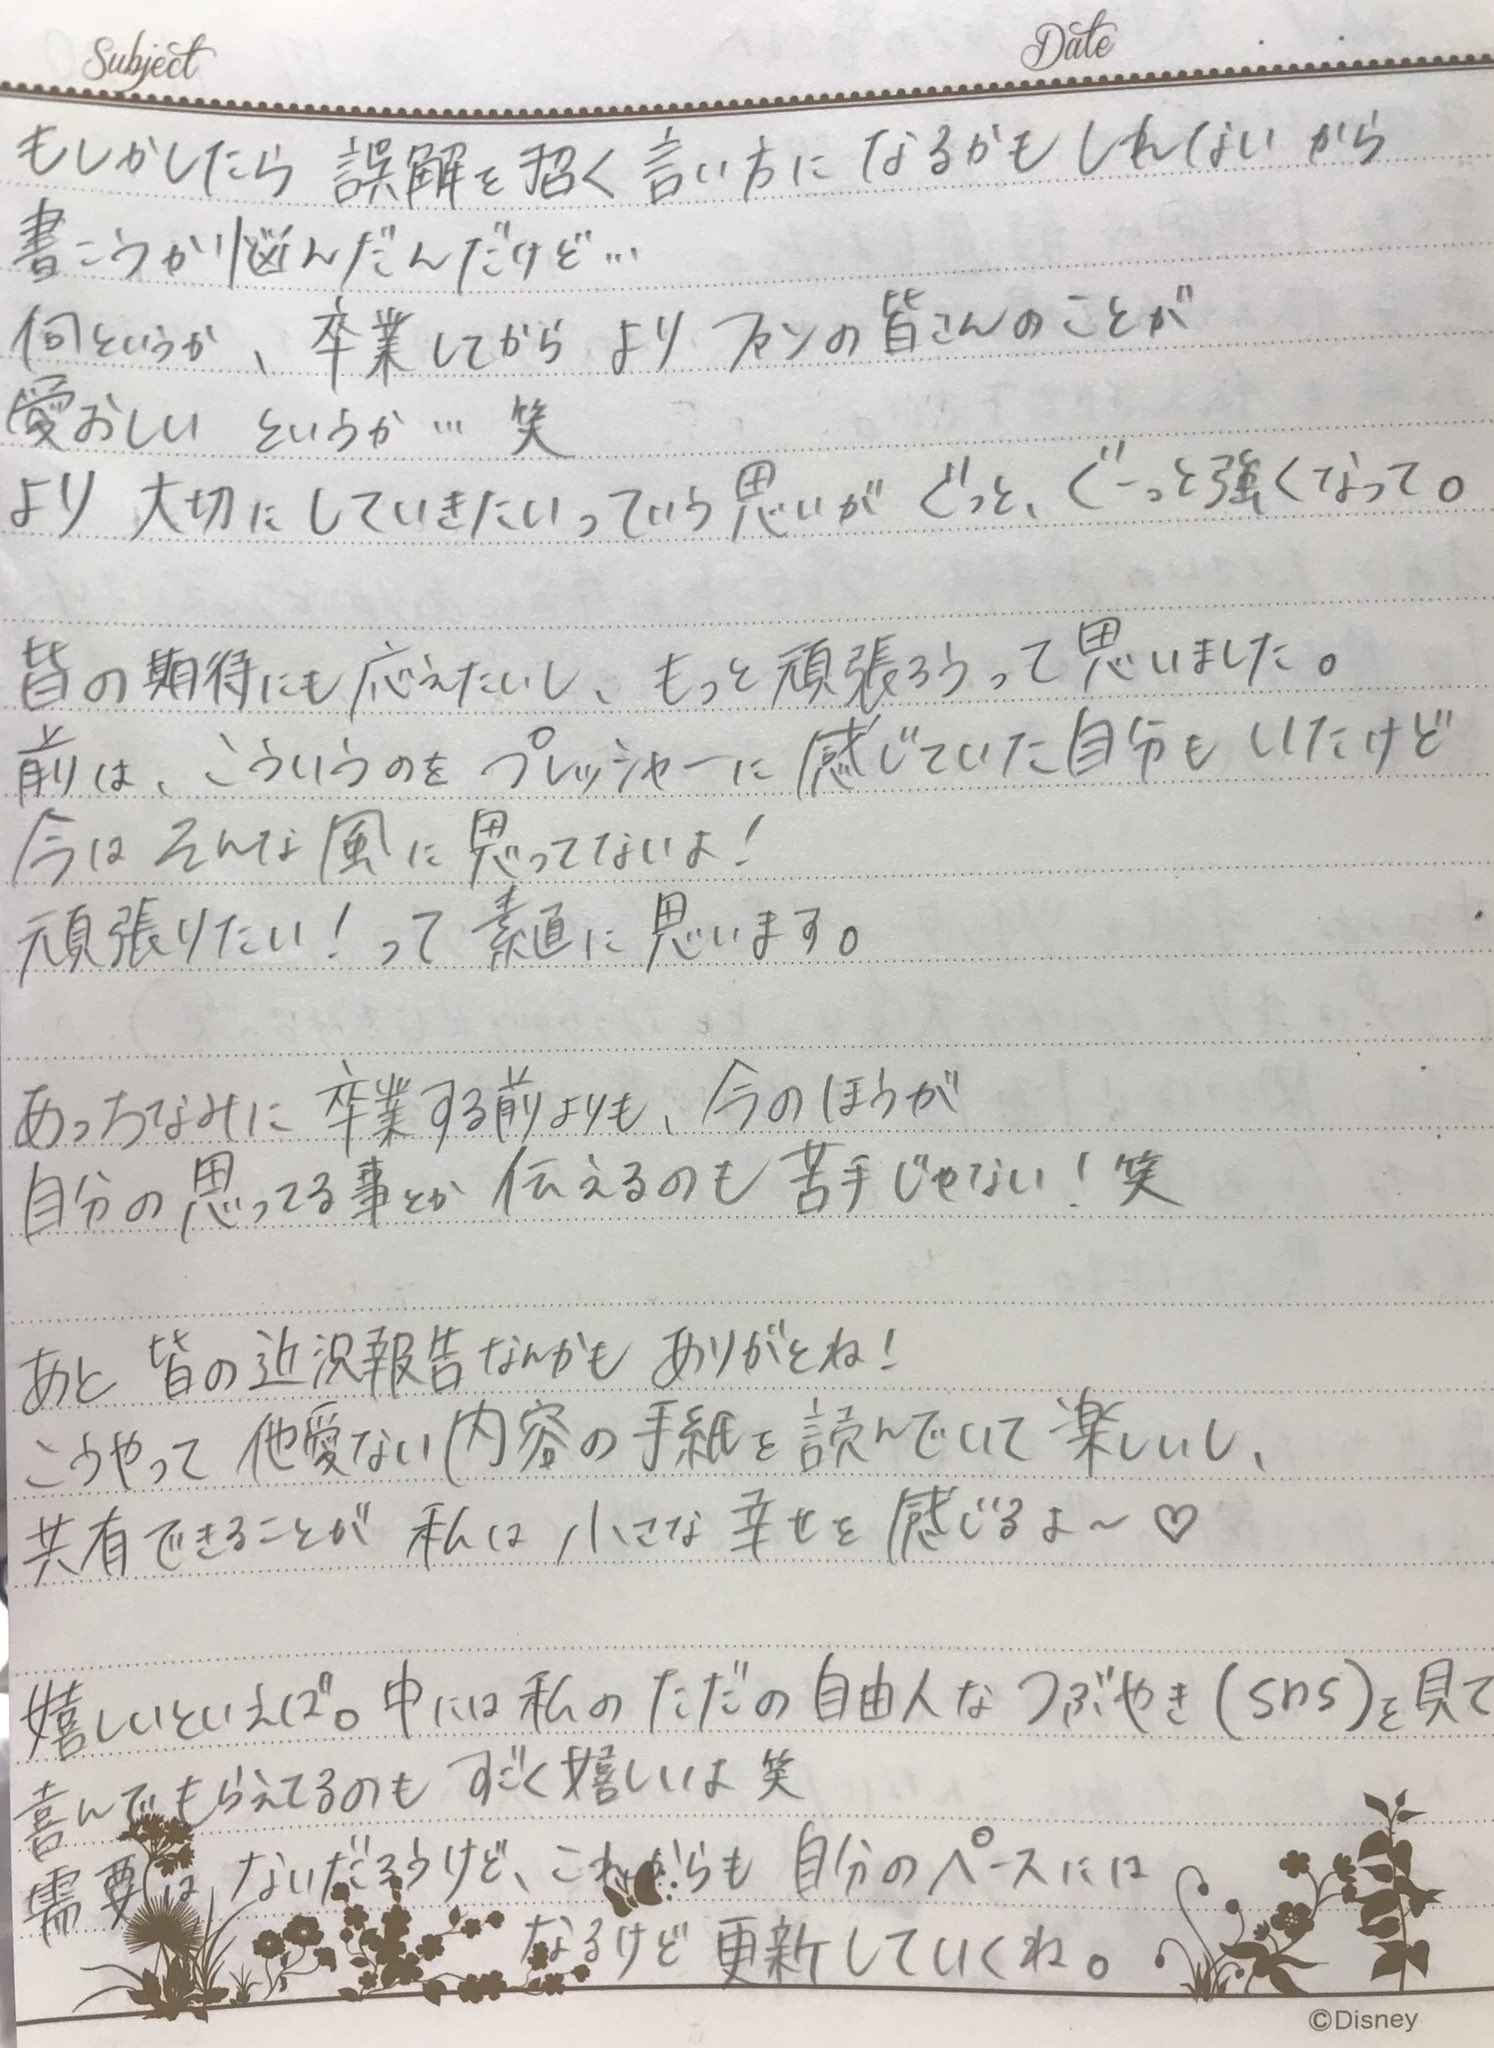 Subject Date
もしかしたら 誤解を招く言い方になるかもしれないから
書こうか悩んだんだけど…
何というか、卒業してから より ファンの皆さんのことが
愛おしい というか… 笑
より 大切にしていきたいっていう思いが ぐっと、ぐーっと強くなって。
皆の期待にも応えたいし、もっと頑張ろうって思いました。
前は、こういうのを プレッシャーに感じていた自分も いたけど
今は そんな風に思ってないよ!
頑張りたい!って 素直に思います。
あっちなみに 卒業する前よりも、今のほうが
自分の思ってる事とか 伝えるのも苦手じゃない! 笑
あと 皆の近況報告なんかも ありがとね!
こうやって 他愛ない内容の手紙を読んでいて楽しいし、
共有できることが 私は 小さな幸せを感じるよ〜♡
嬉しいといえば。中には私のただの自由人なつぶやき(SNS)を見て
喜んでもらえてるのも すごく嬉しいよ 笑
需要は ないだろうけど、これからも 自分のペースには
なるけど 更新していくね。
©Disney